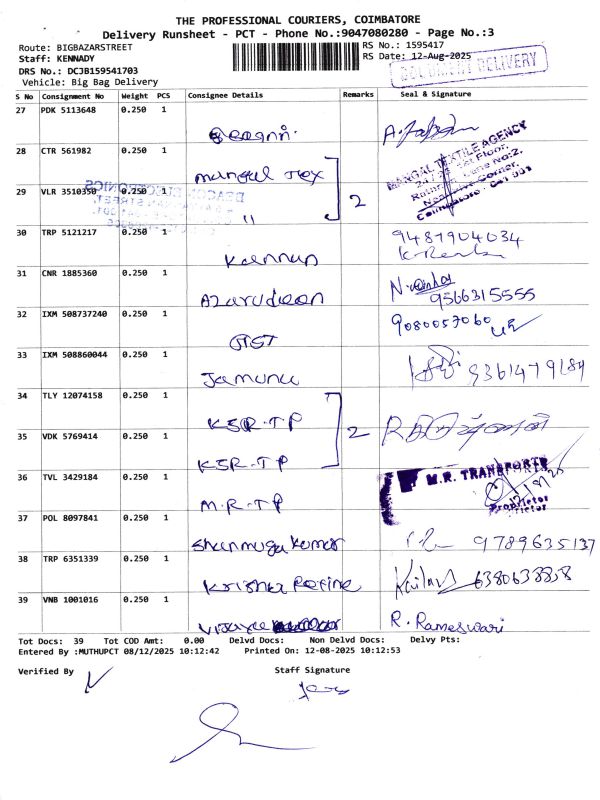 THE PROFESSIONAL COURIERS, COIMBATORE
Delivery Runsheet - PCT - Phone No.:9047080280 - Page No.:3
Route: BIGBAZARSTREET
RS No.: 1595417
Staff: KENNADY
RS Date: 12-Aug-2025
DRS No.: DCJB159541703
DOCUMENT DELIVERY
Vehicle: Big Bag Delivery
S No Consignment No Weight PCS Consignee Details Remarks Seal & Signature
27 PDK 5113648 0.250 1
28 CTR 561982 0.250 1
mangal Tex
MANGAL TEXTILE AGENCY
1st Floor,
Lane No:2,
Corner,
Coimbatore - 641 001
29 VLR 3510350 0.250 1
"
2
30 TRP 5121217 0.250 1
Kannan
9487904034
31 CNR 1885360 0.250 1
Azarudeen
9566315555
32 IXM 508737240 0.250 1
GST
9080057060
33 IXM 508860044 0.250 1
Jamuna
9361479184
34 TLY 12074158 0.250 1
KSR.TP
35 VDK 5769414 0.250 1
KSR.TP
2
36 TVL 3429184 0.250 1
M.R.TP
M.R. TRANSPORTS
Proprietor
37 POL 8097841 0.250 1
Shanmuga kumar
9789635137
38 TRP 6351339 0.250 1
Krishna
6380638838
39 VNB 1001016 0.250 1
R. Rameswari
Tot Docs: 39 Tot COD Amt: 0.00 Delvd Docs: Non Delvd Docs: Delvy Pts:
Entered By :MUTHUPCT 08/12/2025 10:12:42 Printed On: 12-08-2025 10:12:53
Verified By
Staff Signature